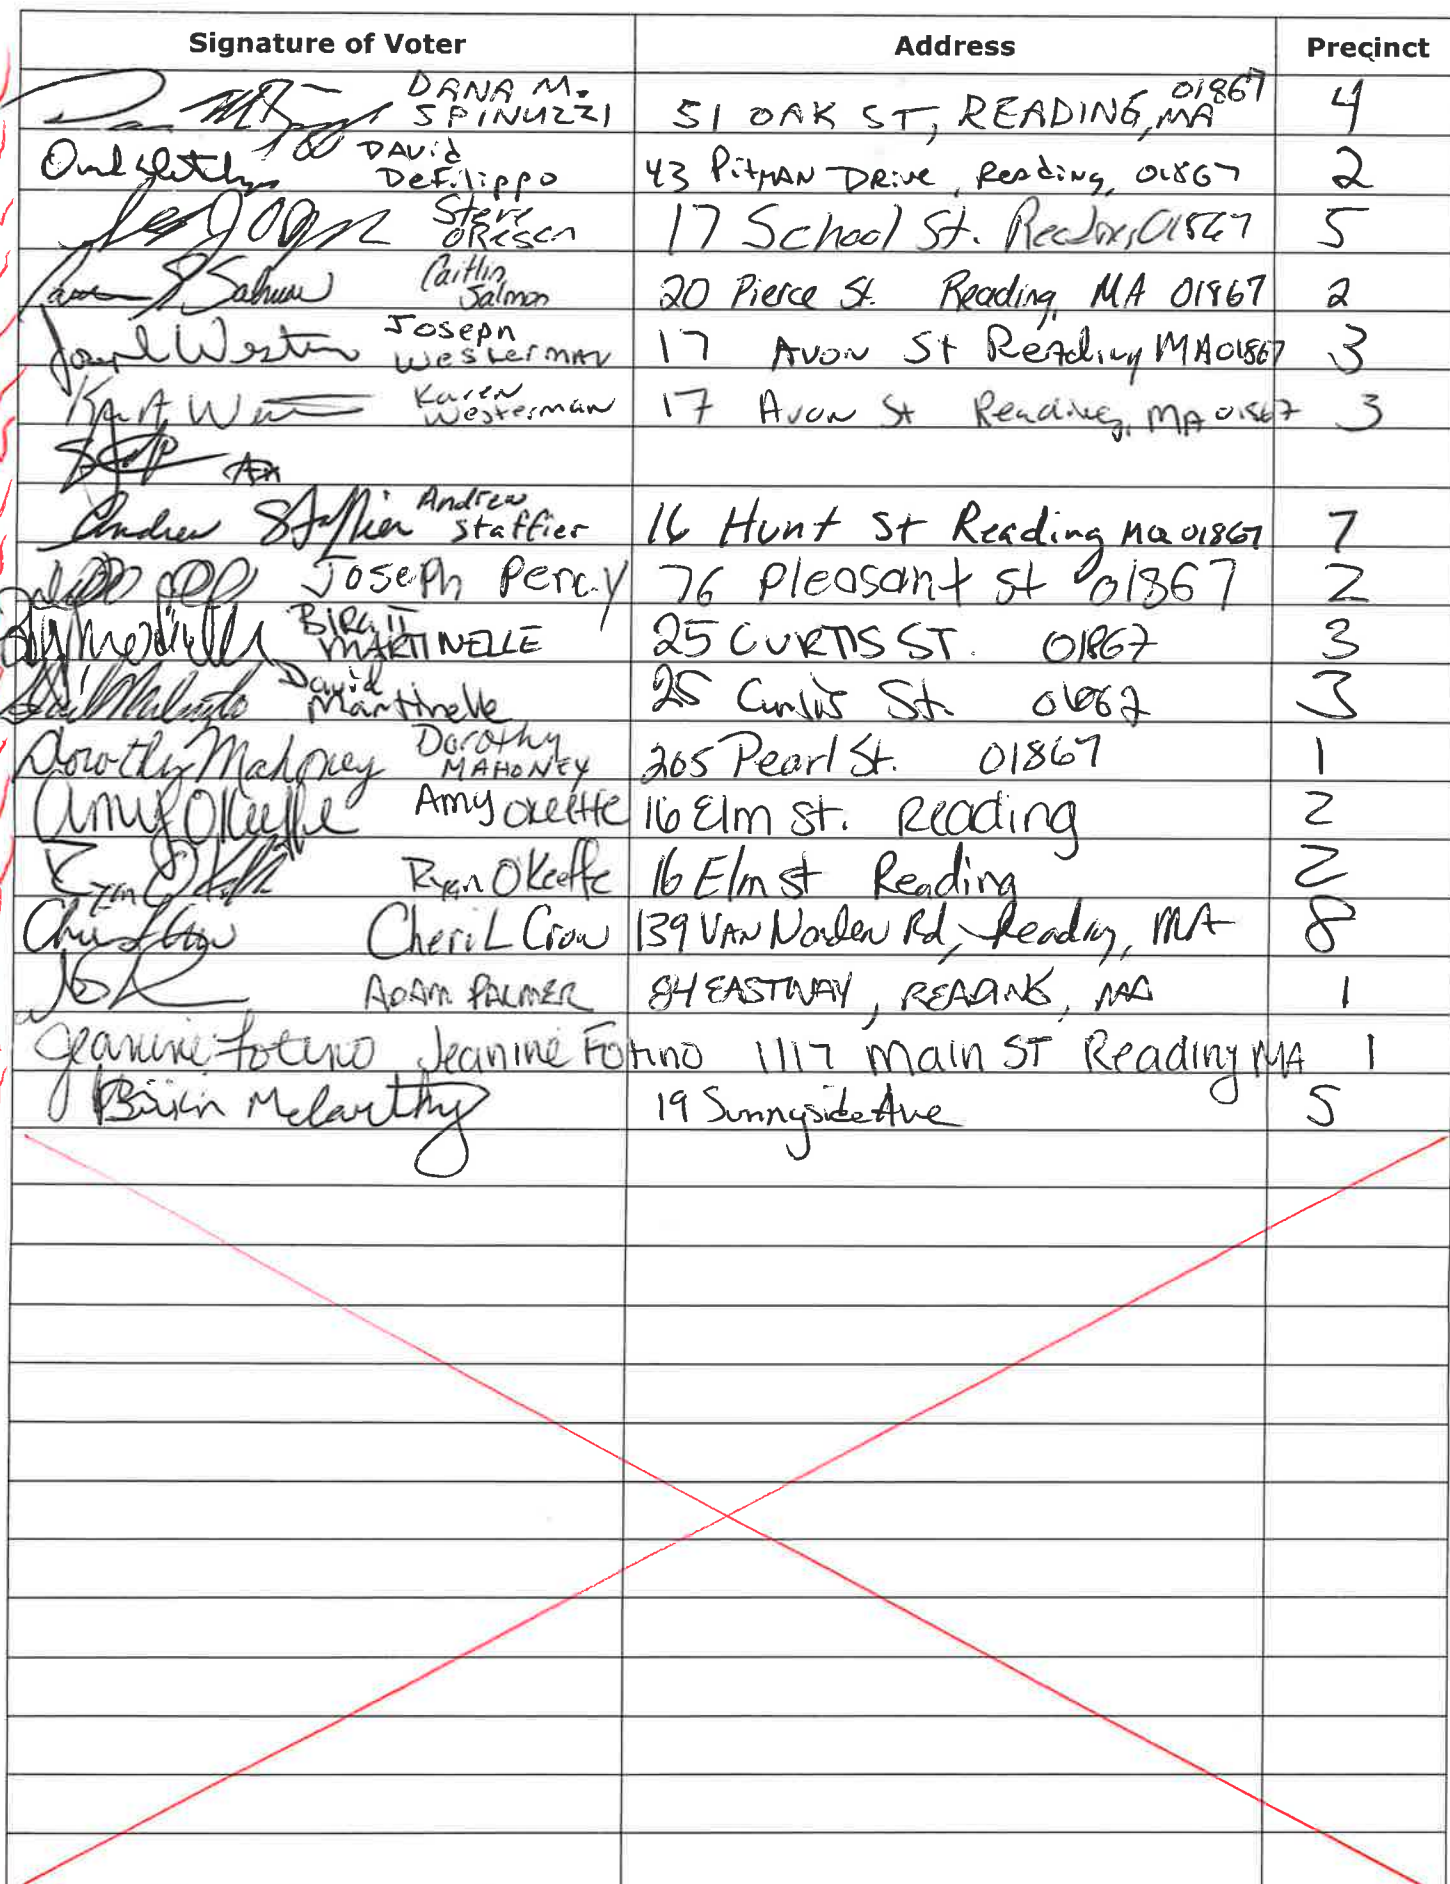 Signature of Voter Address Precinct
DANA M. SPINUZZI 51 OAK ST, READING, MA 01867 4
DAVid DeFilippo 43 PitMAN DRive, Reading, 01867 2
Steve ORESEN 17 School St. Reading 01867 5
Caitlin Salmon 20 Pierce St. Reading, MA 01867 2
Joseph Westerman 17 Avon St Reading MA 01867 3
Karen Westerman 17 Avon St Reading, MA 01867 3
Andrew Staffier Andrew Staffier 16 Hunt St Reading Ma 01867 7
Joseph Percy 76 Pleasant St 01867 2
BIRGIT MARTINELLE 25 CURTIS ST. 01867 3
David Martinelle 25 Curtis St. 01867 3
Dorothy Mahoney Dorothy MAHONEY 205 Pearl St. 01867 1
Amy OKeeffe Amy OKeeffe 16 Elm St. Reading 2
Ryan OKeeffe 16 Elm St Reading 2
Cheri L Crow 139 VAN Norden Rd, Reading, MA 8
ADAM PALMER 84 EASTWAY, READING, MA 1
Jeanine Fotino Jeanine Fotino 1117 Main ST Reading MA 1
Brian McCarthy 19 Sunnyside Ave 5